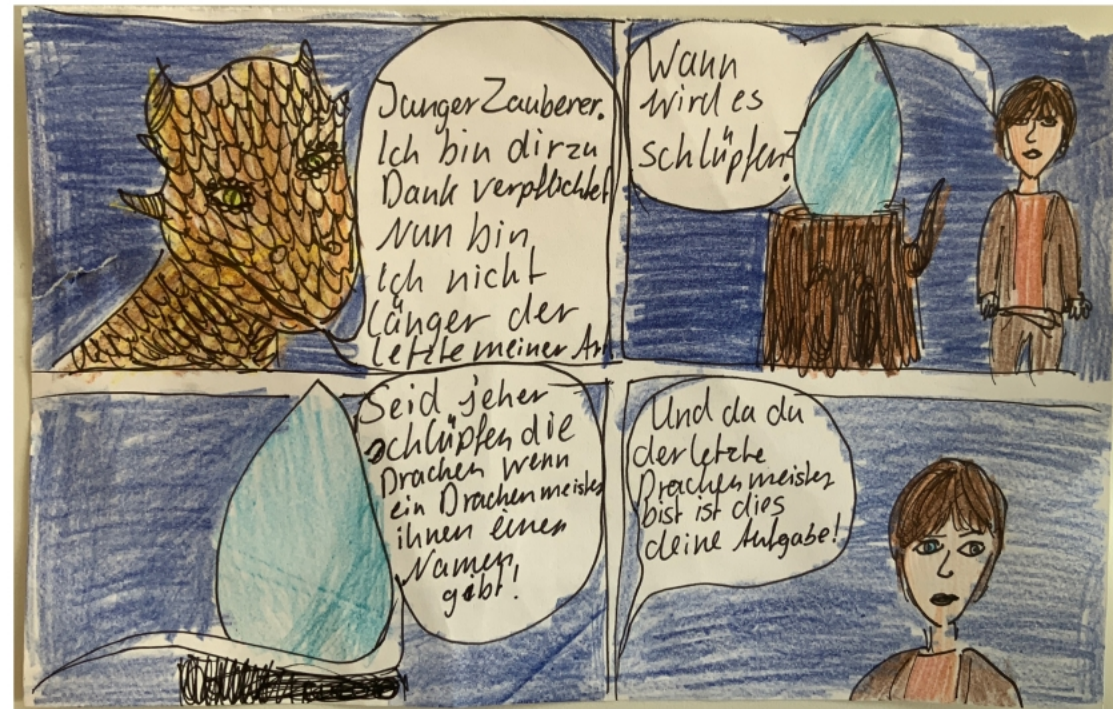 Junger Zauberer.
Ich bin dir zu
Dank verpflichtet
Nun bin
Ich nicht
länger der
letzte meiner Art.
Wann
wird es
schlüpfen?
Seid jeher
schlüpfen die
Drachen wenn
ein Drachenmeister
ihnen einen
Namen
gibt!
Und da du
der letzte
Drachenmeister
bist ist dies
deine Aufgabe!